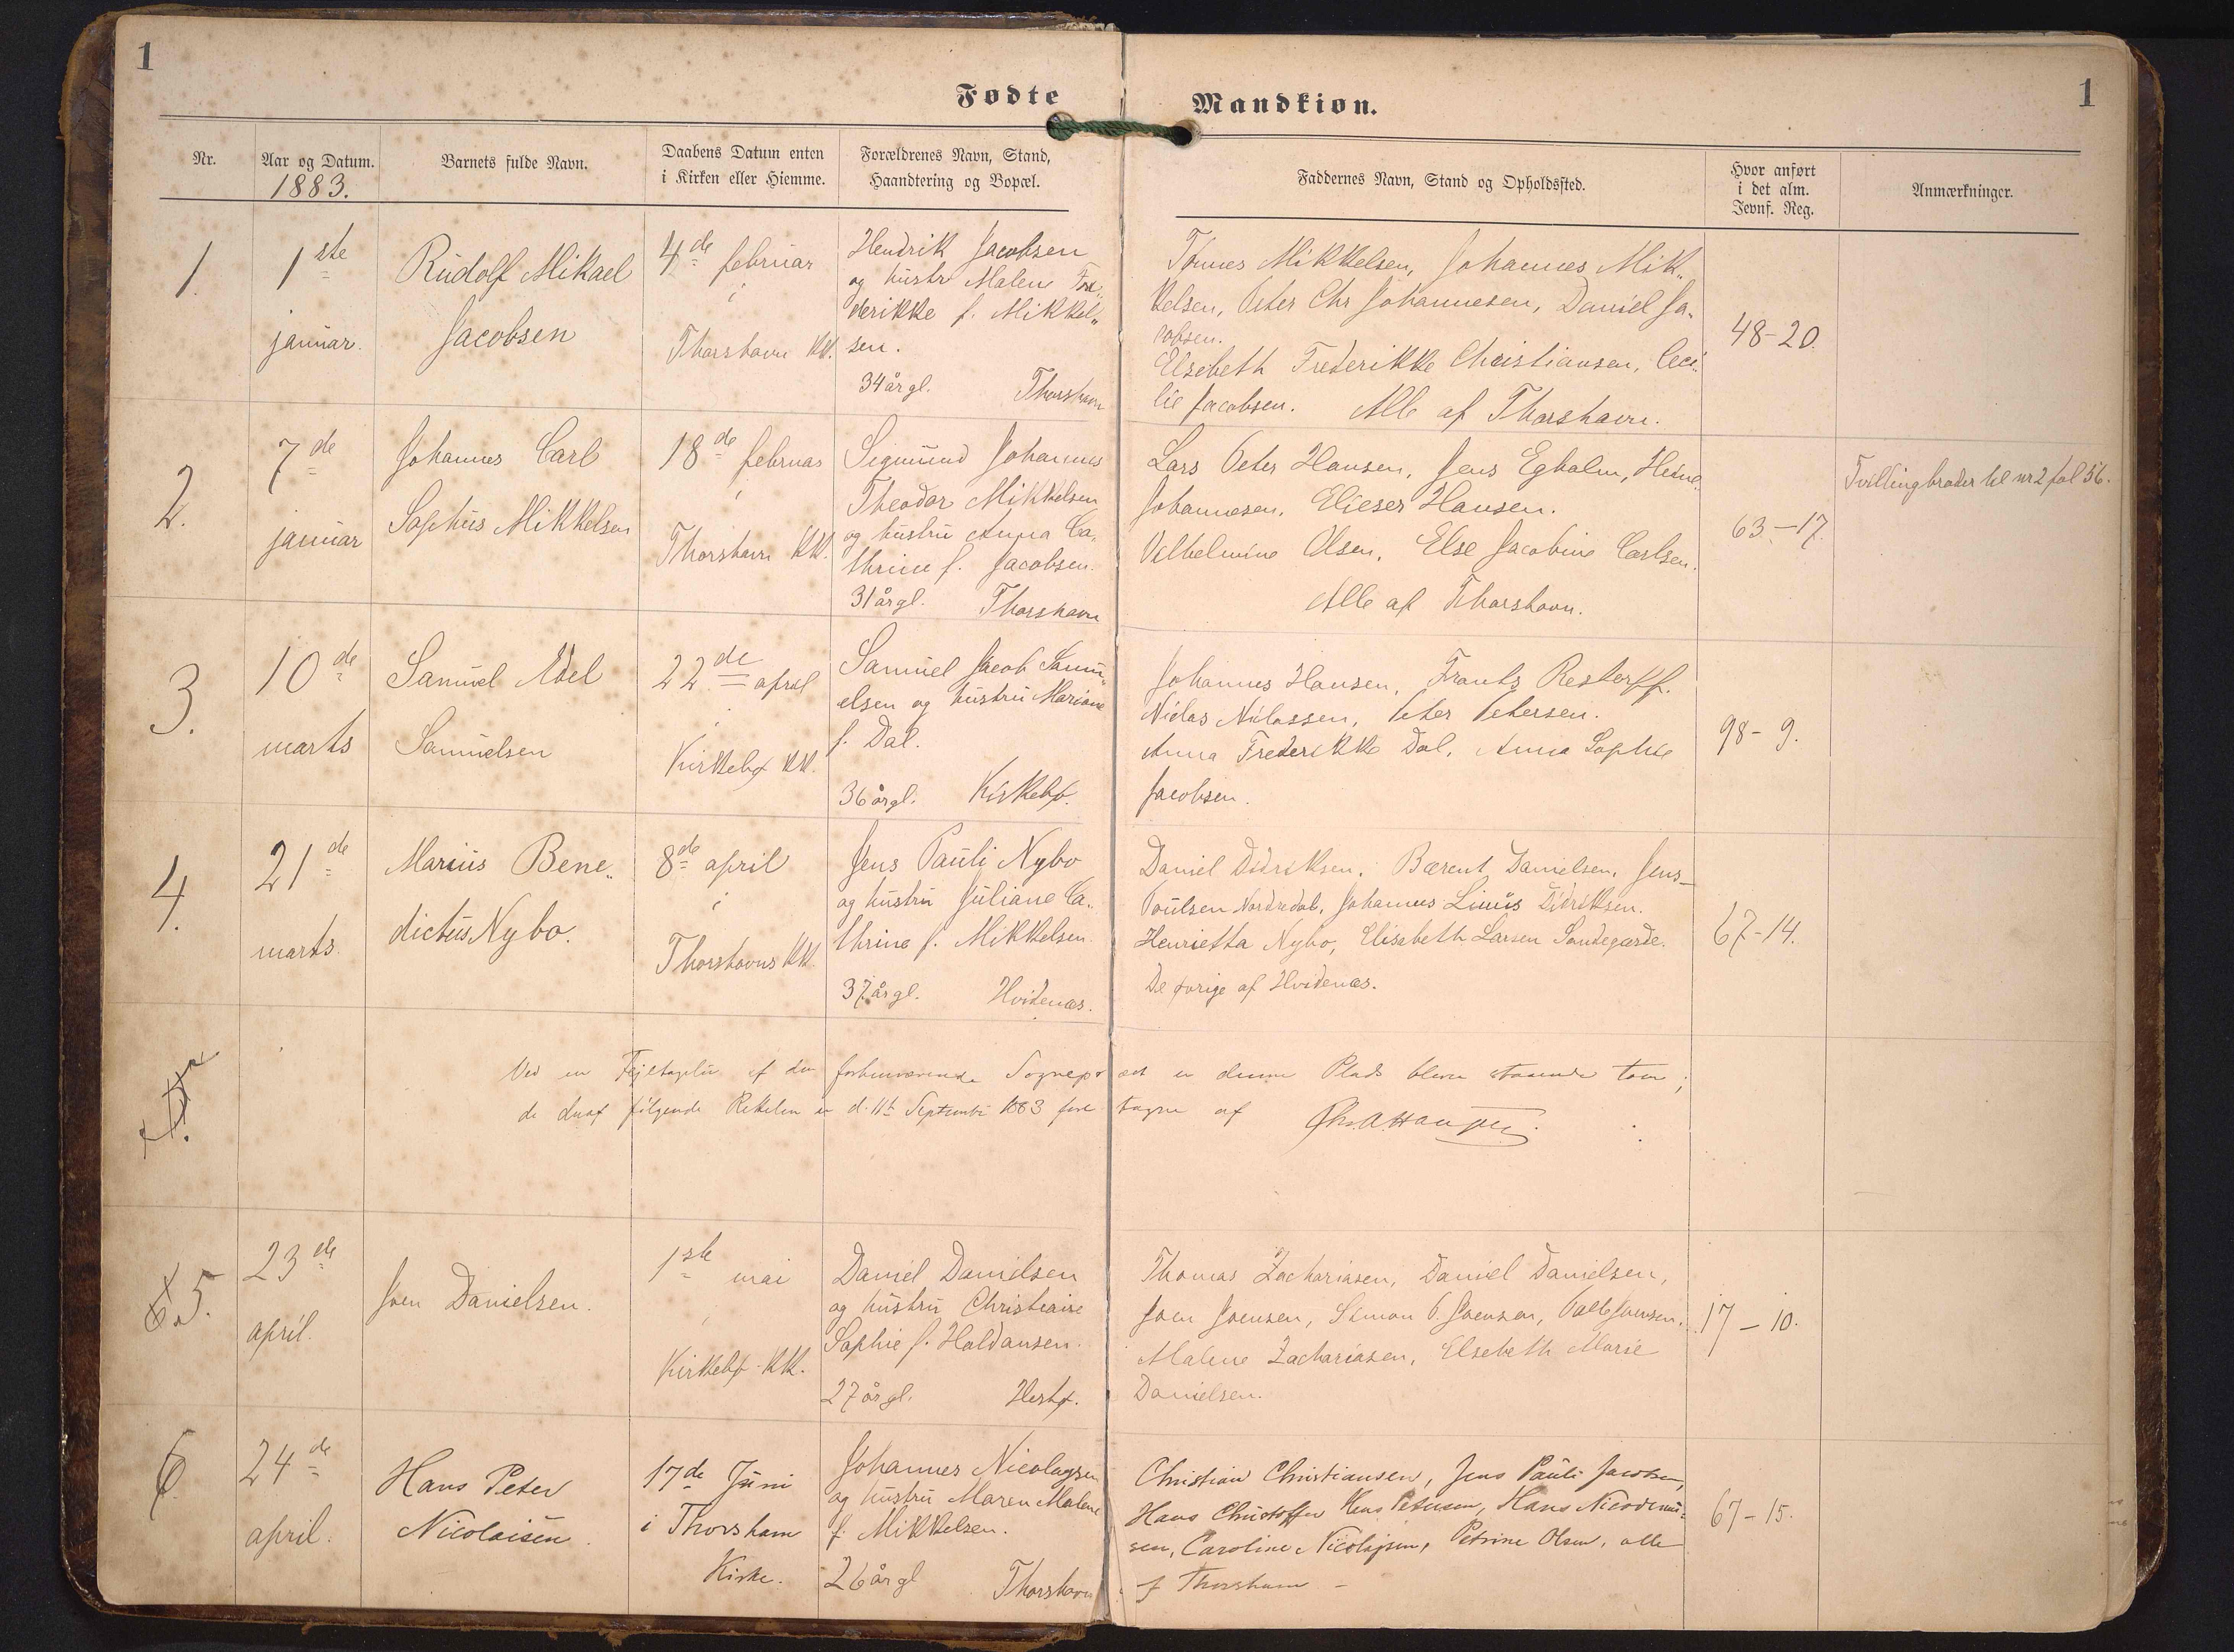 1
1
Fødte
Mandkiøn.
Nr.
Aar og Datum.
1883.
Barnets fulde Navn.
Daabens Datum enten
i Kirken eller Hiemme.
Forældrenes Navn, Stand,
Haandtering og Bopæl.
Faddernes Navn, Stand og Opholdssted.
Hvor anført
i det alm.
Jevnf. Reg.
Anmærkninger.
1.
1ste
januar.
Rudolf Mikael
Jacobsen
4de februar
i
Thorshavn KK.
Hendrik Jacobsen
og hustr Malene Fre„
derikke f. Mikkel„
sen.
34 årgl. Thorshavn
Tønnes Mikkelsen, Johannes Mik„
kelsen, Peter Chr Johannesen, Daniel Ja„
cobsen.
Elsebeth Frederikke Christiansen, Ceci„
lie Jacobsen. Alle af Thorshavn.
48-20.
2.
7de
januar
Johannes Carl
Sophus Mikkelsen
18de februar
i
Thorshavn KK.
Sigmund Johannes
Theodor Mikkelsen
og hustru Anna Ca„
thrine f. Jacobsen.
31 årgl. Thorshavn
Lars Peter Hansen, Jens Egholm,
Johannesen, Elieser Hansen.
Vilhelmine Olsen, Else Jacobine Carlsen.
Alle af Thorshavn.
63-17.
Tvillingbroder til nr 2 fol 56.
3.
10de
marts
Samuel Abel
Samuelsen
22de april
i
Kirkebø KK.
Samuel Jacob Samu„
elsen og hustru Mariane
f. Dal.
36 årgl. Kirkebø.
Johannes Hansen, Frants Restorff.
Niclas Niclassen, Peter Petersen.
Anna Frederikke Dal, Anna Sophie
Jacobsen.
98-9.
4.
21de
marts.
Marius Bene„
dictus Nybo.
8de april
i
Thorshavns KK.
Jens Pauli Nybo
og hustru Juliane Ca„
thrine f. Mikkelsen.
37 årgl. Hvidenæs.
Daniel Didriksen, Bærent Danielsen, Jens
Poulsen Nordredal, Johannes Linus Didriksen.
Henrietta Nybo, Elisebeth Larsen Sandegærde.
De øvrige af Hvidenæs.
67-14.
Ved en Fejltagelse af den forhenværende Sognepræst er denne Plads bleven staaende tom;
de deraf følgende Rettelser er d. 11te September 1883 foretagne af
5.
23de
april.
Joen Danielsen.
1ste mai
i
Kirkebø KK.
Daniel Danielsen
og hustru Christiane
Sophie f. Haldansen.
27 årgl. Hestø.
Thomas Zachariasen, Daniel Danielsen,
Joen Joensen, Simon P. Joensen, Palle Joensen.
Malene Zachariasen, Elsebeth Marie
Danielsen.
17-10.
6
24de
april.
Hans Peter
Nicolaisen.
17de Juni
i Thorshavn
Kirke.
Johannes Nicolaysen
og hustru Maren Malene
f. Mikkelsen.
26 årgl Thorshavn
Christian Christiansen, Jens Pauli Jacobsen,
Hans Christoffer Petersen, Hans Nicodemu„
sen, Caroline Nicolajsen, Petrine Olsen, alle
af Thorshavn
67-15.